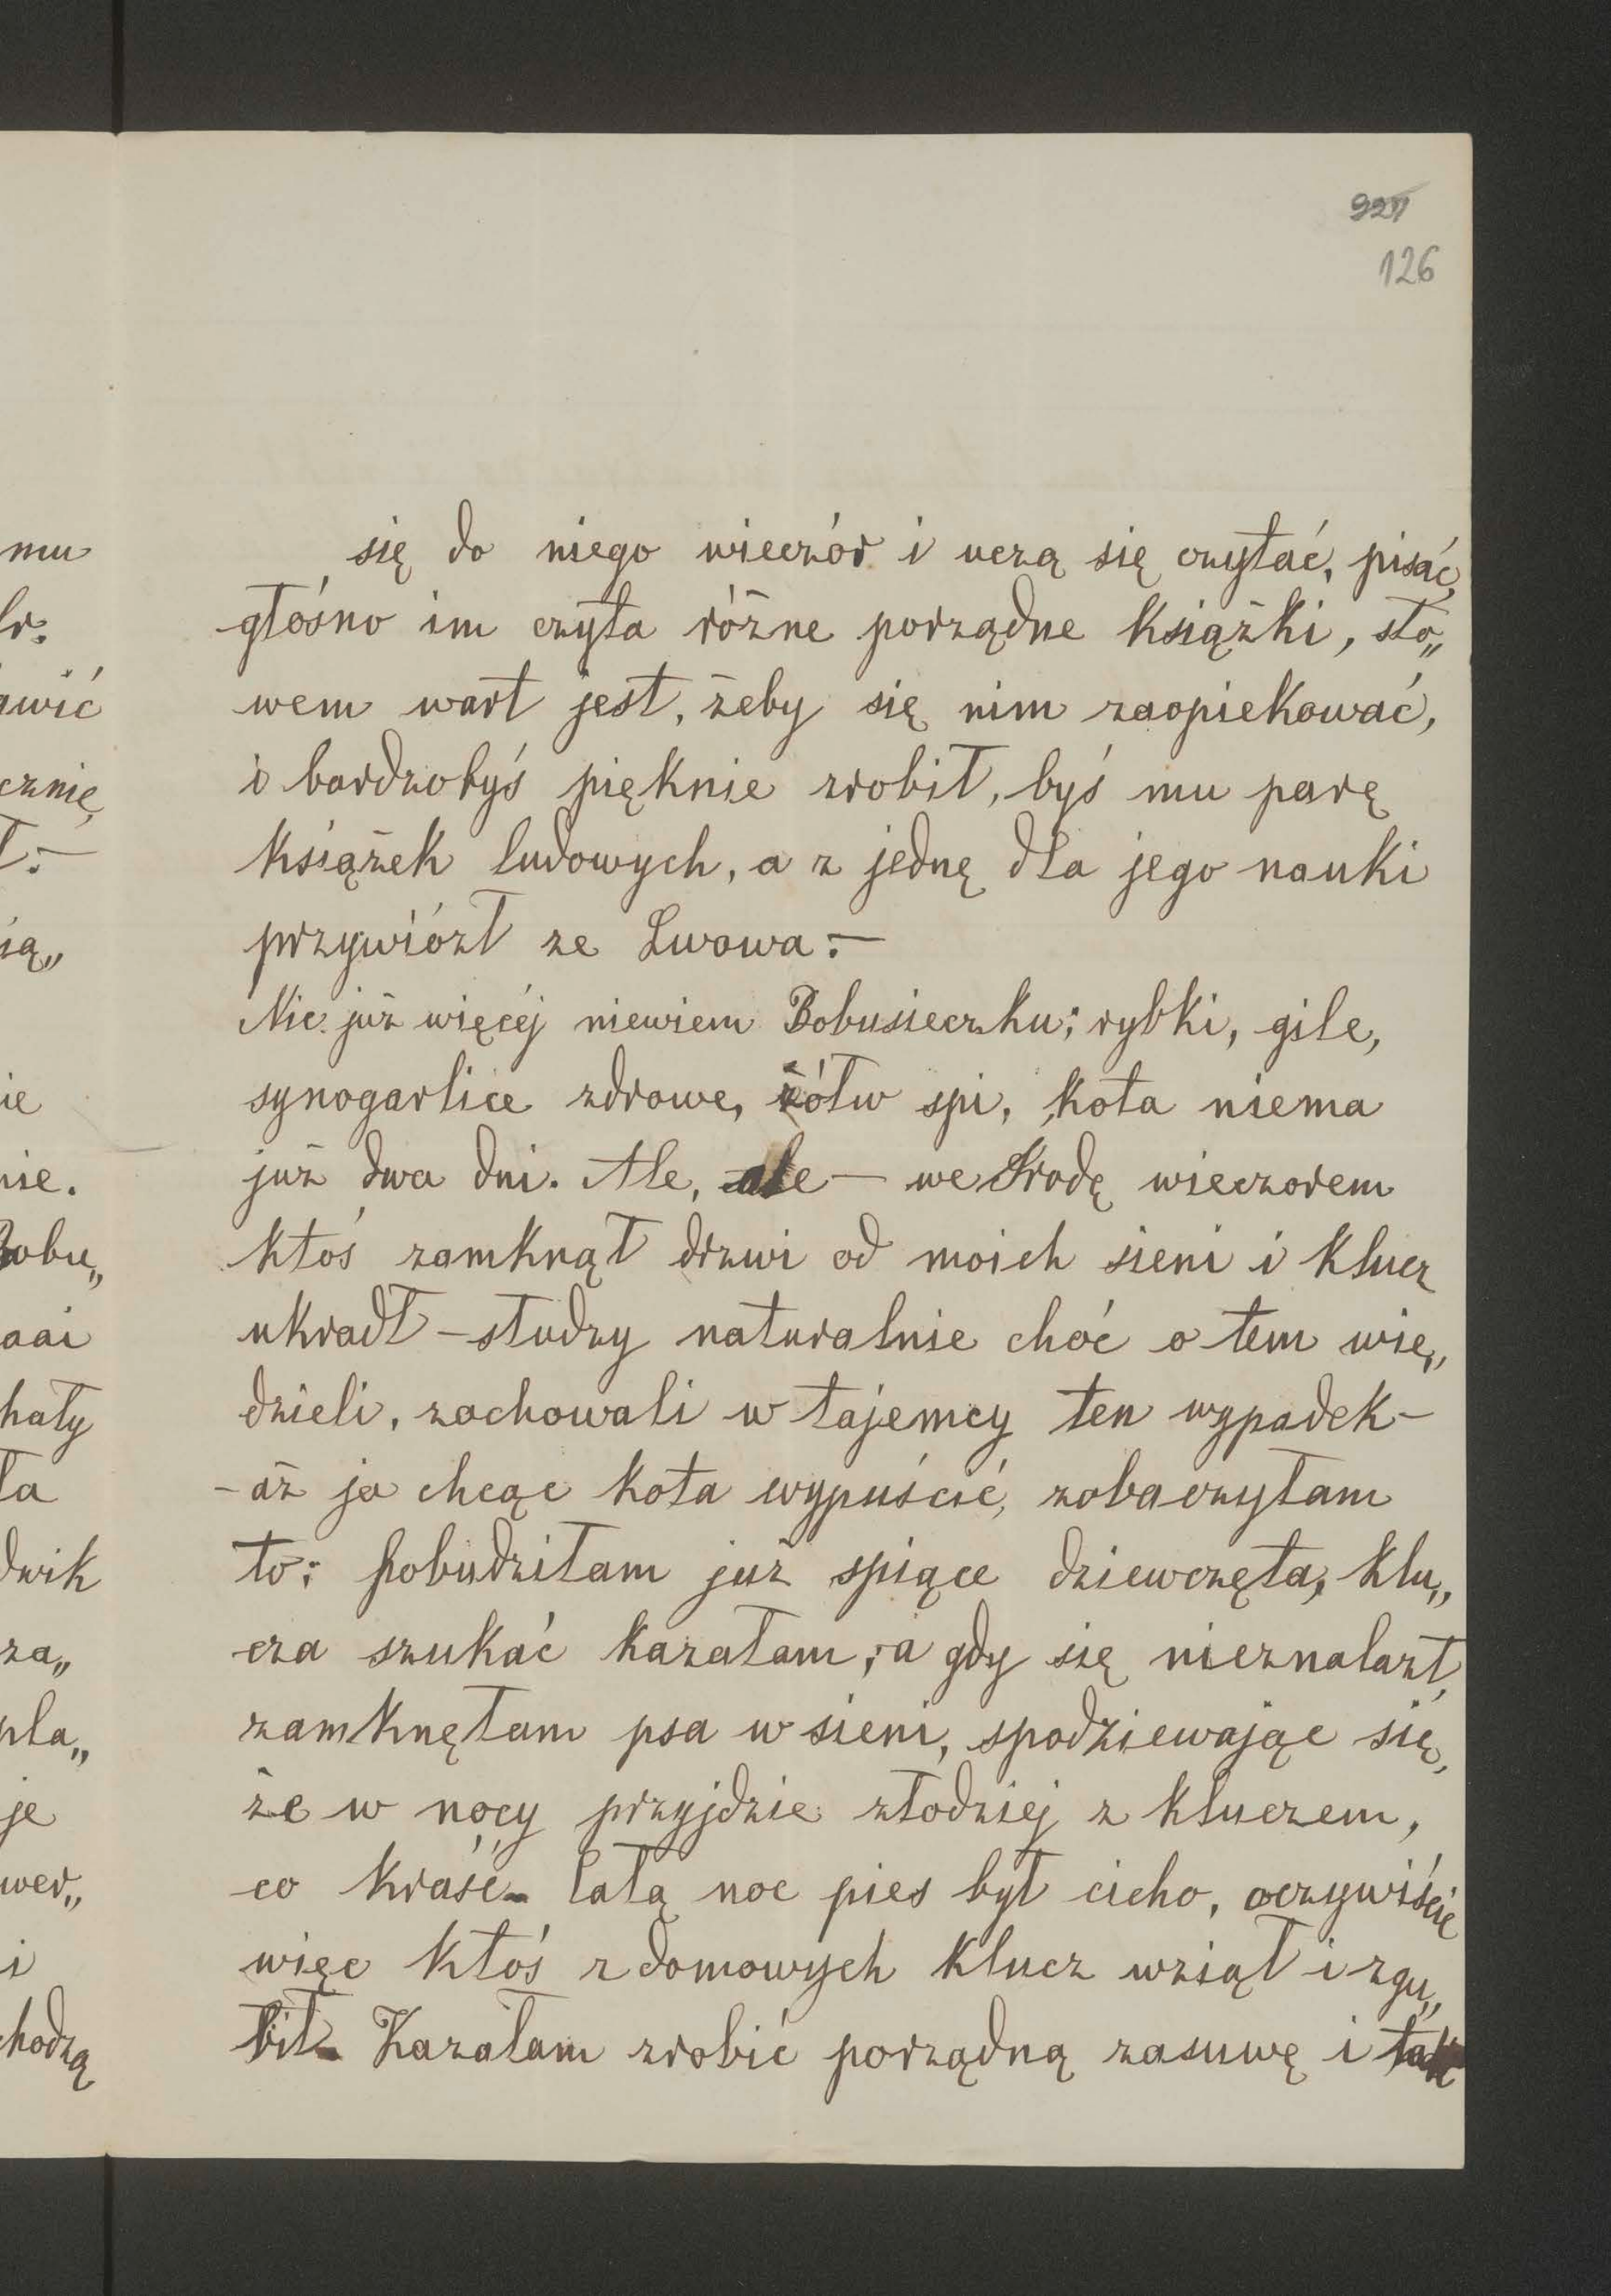 126
się do niego wieczór i uczą się czytać, pisać,
głośno im czyta różne porządne książki, sło„
wem wart jest, żeby się nim zaopiekować,
i bardzobyś pięknie zrobił, byś mu parę
książek ludowych, a z jednę dla jego nauki
przywiózł ze Lwowa.—
Nic już więcéj niewiem Bobusieczku; rybki, gile,
synogarlice zdrowe, żółw spi, kota niema
już dwa dni. Ale, ale — we Srodę wieczorem
ktoś zamknął drzwi od moich sieni i klucz
ukradł – słudzy naturalnie choć o tem wie„
dzieli, zachowali w tajemcy ten wypadek –
– aż ja chcąc kota wypuścić, zobaczyłam
to; pobudziłam już spiące dziewczęta, klu„
cza szukać kazałam; a gdy się nieznalazł,
zamknęłam psa w sieni, spodziewając się,
że w nocy przyjdzie złodziej z kluczem,
co kraść – całą noc pies był cicho, oczywiście
więc ktoś z domowych klucz wziął i zgu„
bił – Kazałam zrobić porządną zasuwę i tak
mu
awić
cznię
ią„
ie
nie.
Bobu„
aai
hały
ła
dwik
za„
pla„
je
wer„
i
chodzą